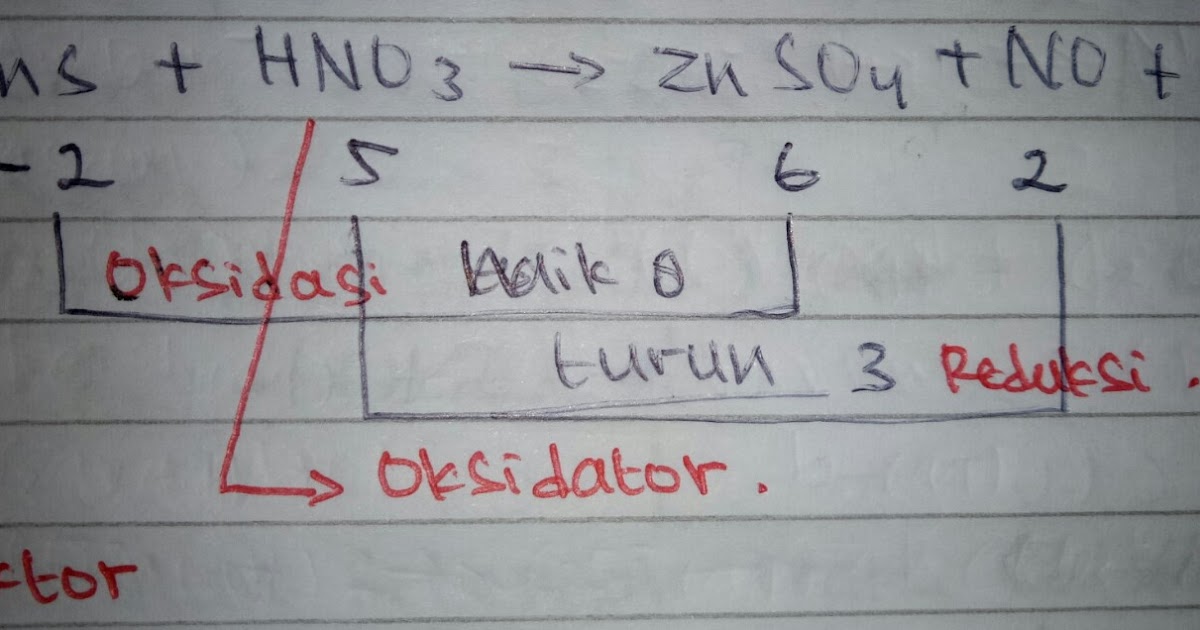 nS + HNO₃ → Zn SO₄ + NO +
-2 5 6 2
Oksidasi Naik 8
turun 3 Reduksi .
Oksidator .
tor